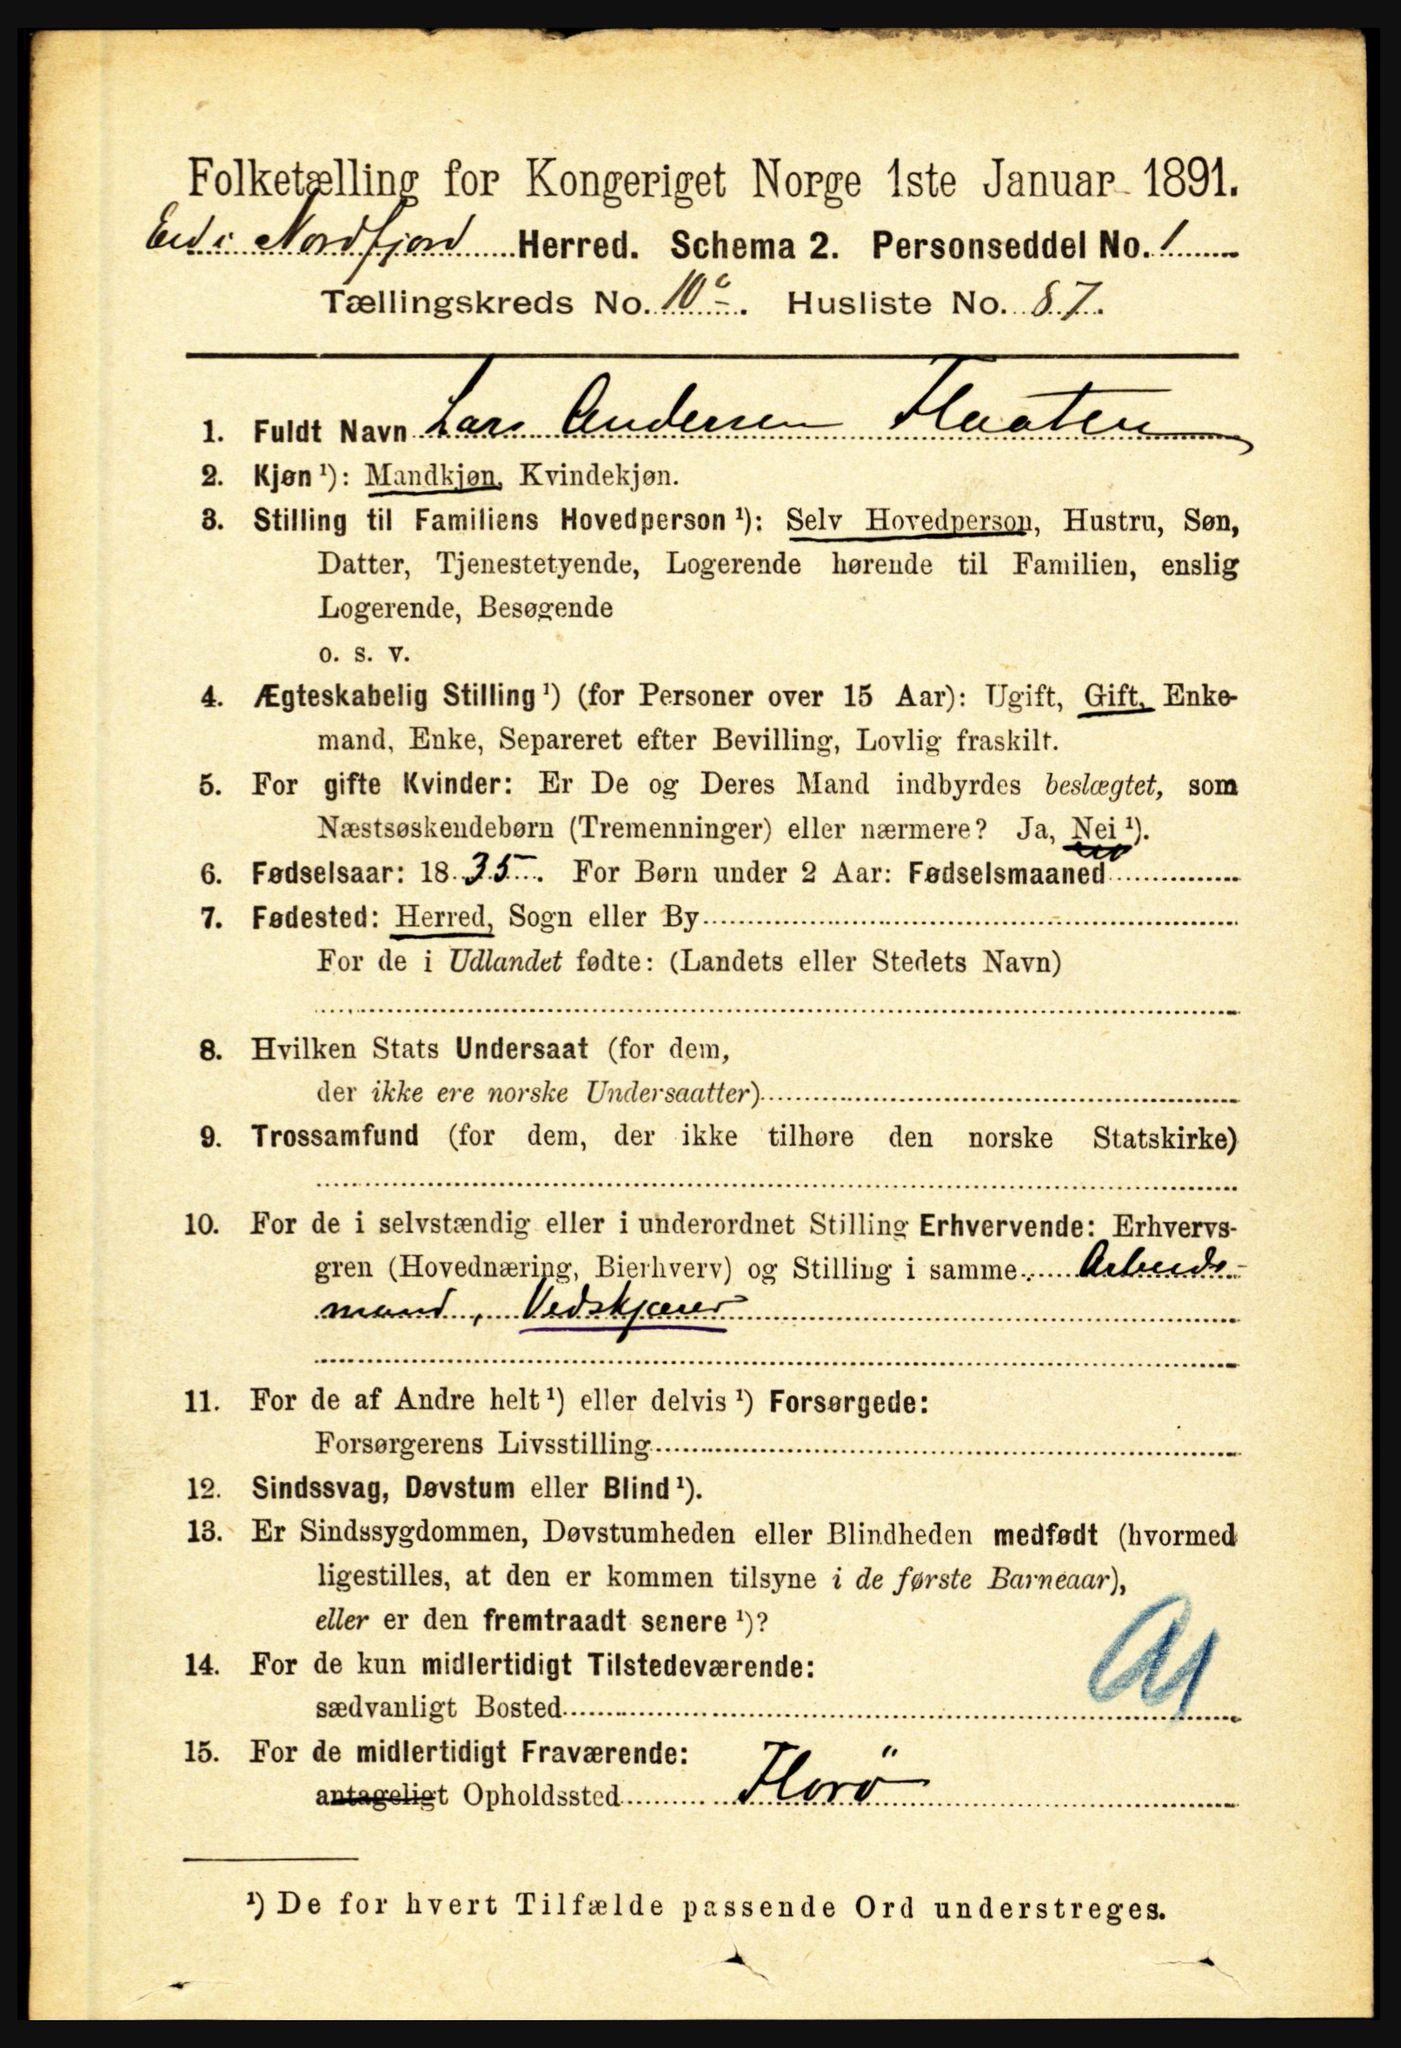 Folketælling for Kongeriget Norge 1ste Januar 1891.
Eid i Nordfjord Herred. Schema 2. Personseddel No. 1
Tællingskreds No. 10 Husliste No. 87.
1. Fuldt Navn Lars Andersen Flaaten
2. Kjøn¹): Mandkjøn, Kvindekjøn.
3. Stilling til Familiens Hovedperson¹): Selv Hovedperson, Hustru, Søn,
Datter, Tjenestetyende, Logerende hørende til Familien, enslig
Logerende, Besøgende
o. s. v.
4. Ægteskabelig Stilling¹) (for Personer over 15 Aar): Ugift, Gift, Enke-
mand, Enke, Separeret efter Bevilling, Lovlig fraskilt.
5. For gifte Kvinder: Er De og Deres Mand indbyrdes beslægtet, som
Næstsøskendebørn (Tremenninger) eller nærmere? Ja, Nei¹).
6. Fødselsaar: 1835. For Børn under 2 Aar: Fødselsmaaned
7. Fødested: Herred, Sogn eller By
For de i Udlandet fødte: (Landets eller Stedets Navn)
8. Hvilken Stats Undersaat (for dem,
der ikke ere norske Undersaatter)
9. Trossamfund (for dem, der ikke tilhøre den norske Statskirke)
10. For de i selvstændig eller i underordnet Stilling Erhvervende: Erhvervs-
gren (Hovednæring, Bierhverv) og Stilling i samme Arbeids-
mand, Vedskjærer
11. For de af Andre helt¹) eller delvis¹) Forsørgede:
Forsørgerens Livsstilling
12. Sindssvag, Døvstum eller Blind¹).
13. Er Sindssygdommen, Døvstumheden eller Blindheden medfødt (hvormed
ligestilles, at den er kommen tilsyne i de første Barneaar),
eller er den fremtraadt senere¹)?
14. For de kun midlertidigt Tilstedeværende:
sædvanligt Bosted
15. For de midlertidigt Fraværende:
antageligt Opholdssted Florö
¹) De for hvert Tilfælde passende Ord understreges.